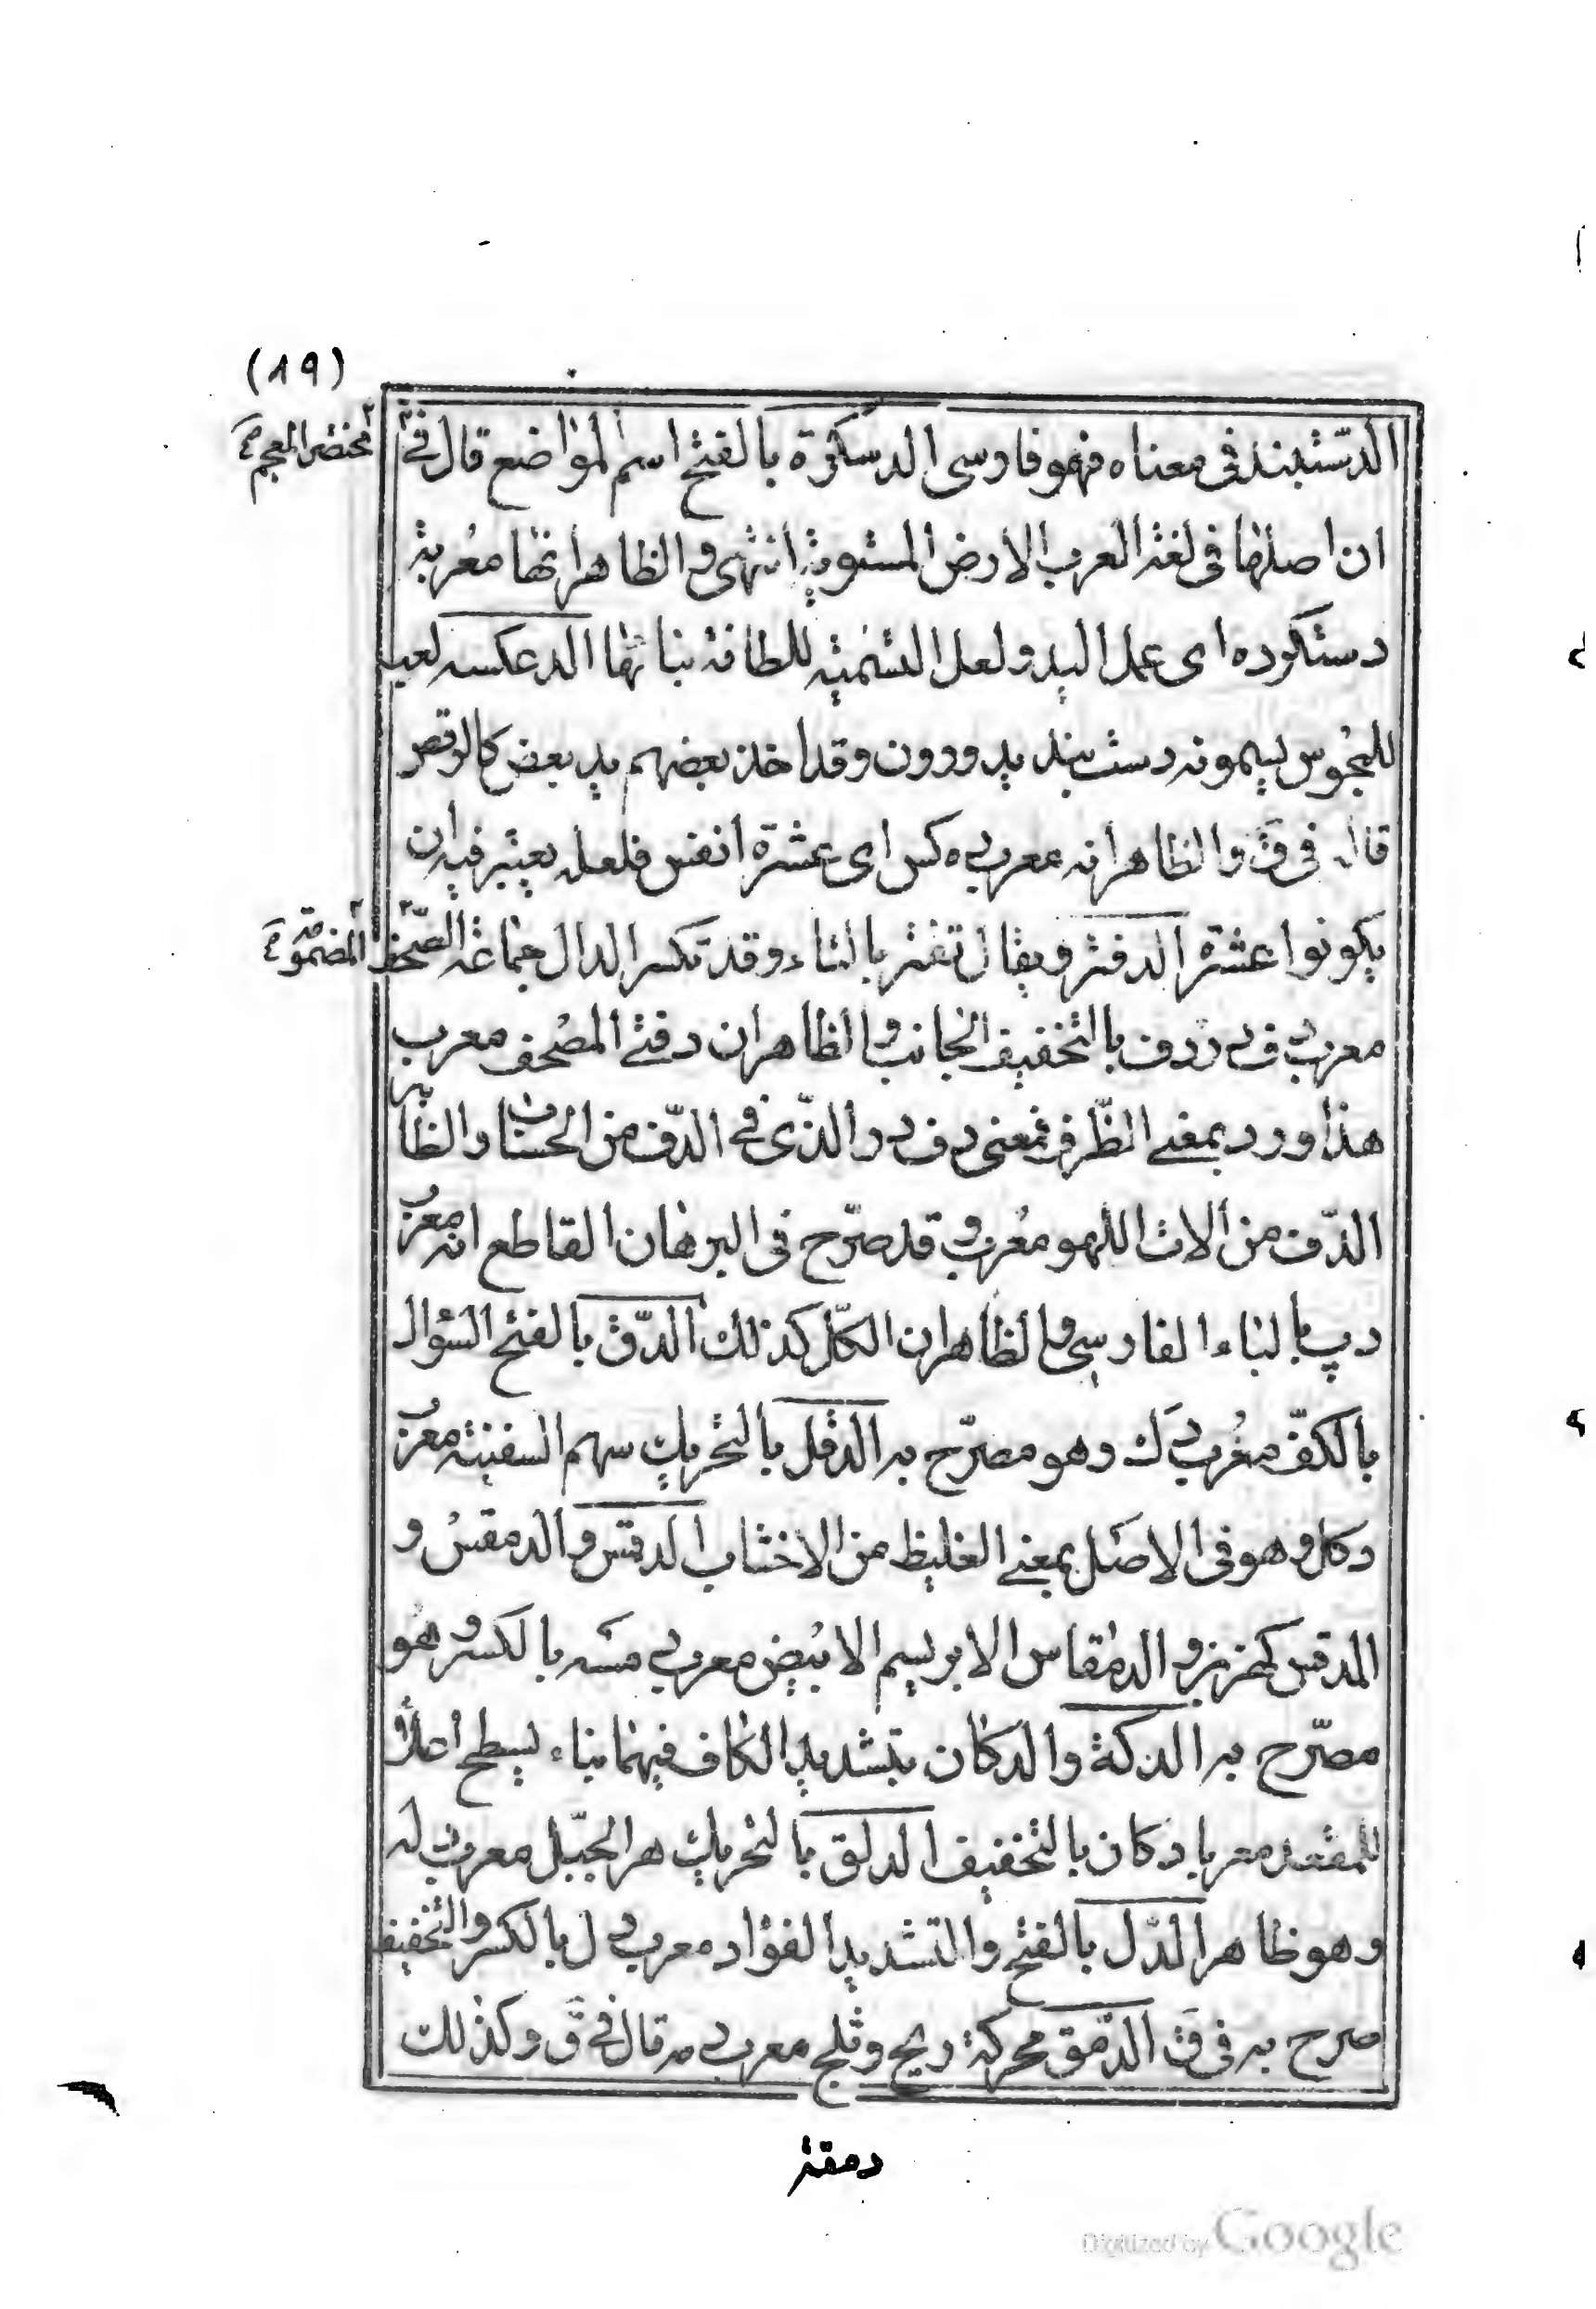 (19)
الدّستبند فى معناه فهو فارسى الدسكرة بالفتح اسم لمواضع قال فى
مختصر المعجم
ان اصلها فى لغة العرب الارض المستوية انتهى و الظاهر انها معربة
دستكرده اى عمل اليد و لعل التسمية للطافة بنائها الدعكسه لعبة
للمجوس يسمونه دست بند يدورون وقد اخذ بعضهم يد بعض كالرقص
قال فى ق و الظاهر انه معرب ده كس اى عشرة انفس فلعله يعتبر فيه ان
يكونوا عشرة الدفتر و يقال تفتر بالتاء وقد تكسر الدال جماعة الصّحف
المضمومة
معرب دف بالتخفيف الجانب و الظاهر ان دفتى المصحف معرب
هذا و ورد بمعنى الظرف
الدّف من آلات اللهو معرب و قد صرّح فى البرهان القاطع انه معرب
دپ بالباء الفارسى و الظاهر ان الكلّ كذلك الدّق بالفتح السؤال
بالكفّ معرب دك وهو مصرّح به الدقل بالتحريك سهم السفينة معرب
دكل وهو فى الاصل بمعنى الغليظ من الاخشاب الدقس و الدمقس و
المدقس كهزبر و الدمقاس الابريسم الابيض معرب مسه بالكسر و هو
مصرّح به الدكة والدكان بتشديد الكاف فيهما بناء يسطح اعلاه
للمقعد معربا دكان بالتخفيف الدلق بالتحريك هر الجبل معرب له
وهو ظاهر الدّل بالفتح والتشديد الفؤاد معرب دل بالكسر والتخفيف
صرح به فى ق الدّمق محركة ريح و ثلج معرب دمه قال فى ق و كذلك
دمقة
Digitized by Google